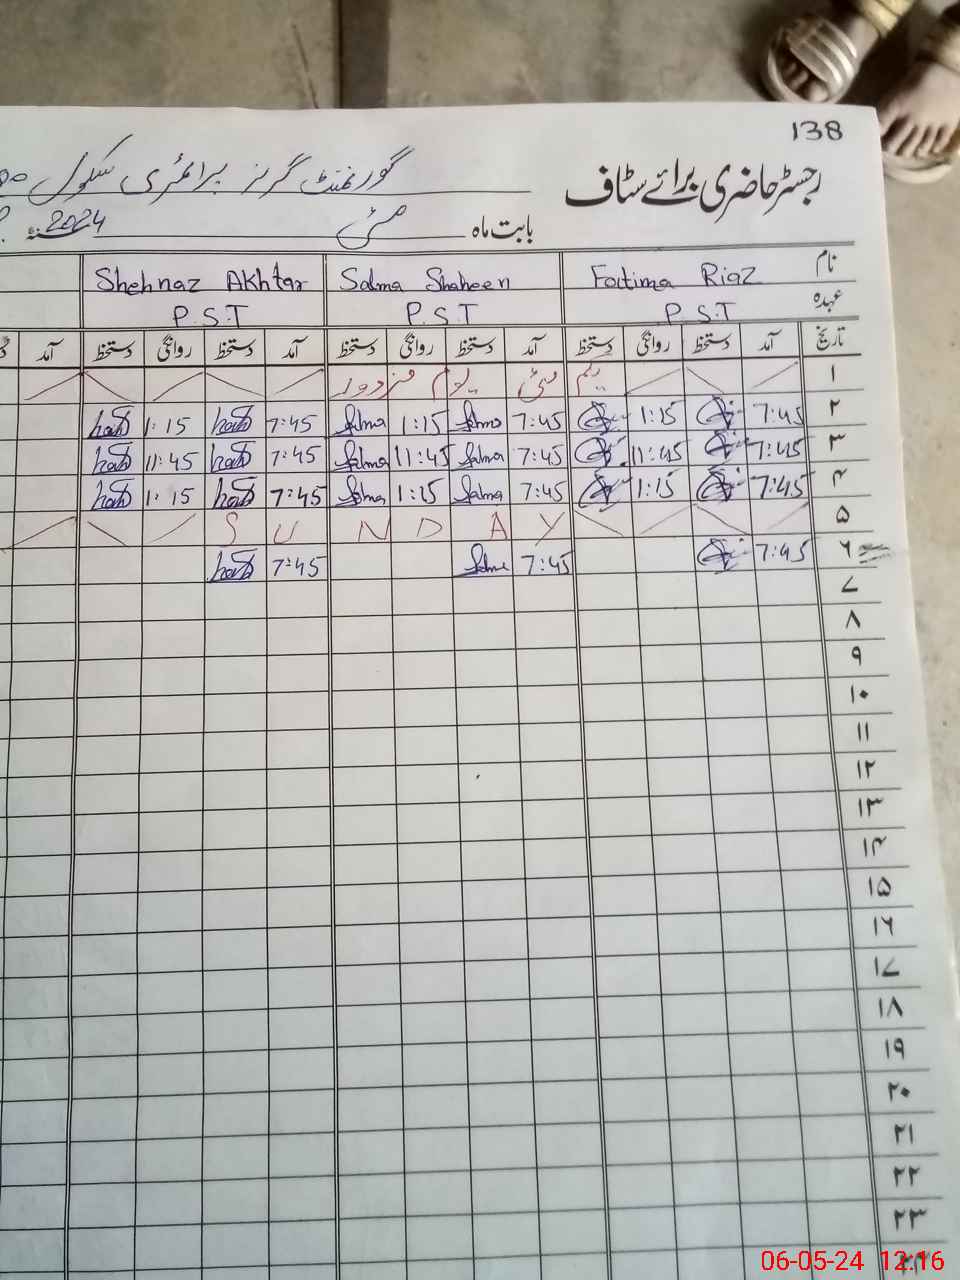 138
رجسٹر حاضری برائے سٹاف گورنمنٹ گرلز پرائمری سکول
بابت ماہ مئی سنہ 2024
نام Fatima Riaz Salma Shaheen Shehnaz Akhtar
عہدہ P.S.T P.S.T P.S.T
تاریخ آمد دستخط روانگی دستخط آمد دستخط روانگی دستخط آمد دستخط روانگی دستخط آمد
۱ یکم مئی یوم مزدور
۲ 7:45 1:15 7:45 Salma 1:15 Salma 7:45 1:15
۳ 7:45 11:45 7:45 Salma 11:45 Salma 7:45 11:45
۴ 7:45 1:15 7:45 Salma 1:15 Salma 7:45 1:15
۵ SUNDAY
۶ 7:45 7:45 Salma 7:45
۷
۸
۹
۱۰
۱۱
۱۲
۱۳
۱۴
۱۵
۱۶
۱۷
۱۸
۱۹
۲۰
۲۱
۲۲
۲۳
06-05-24 12:16